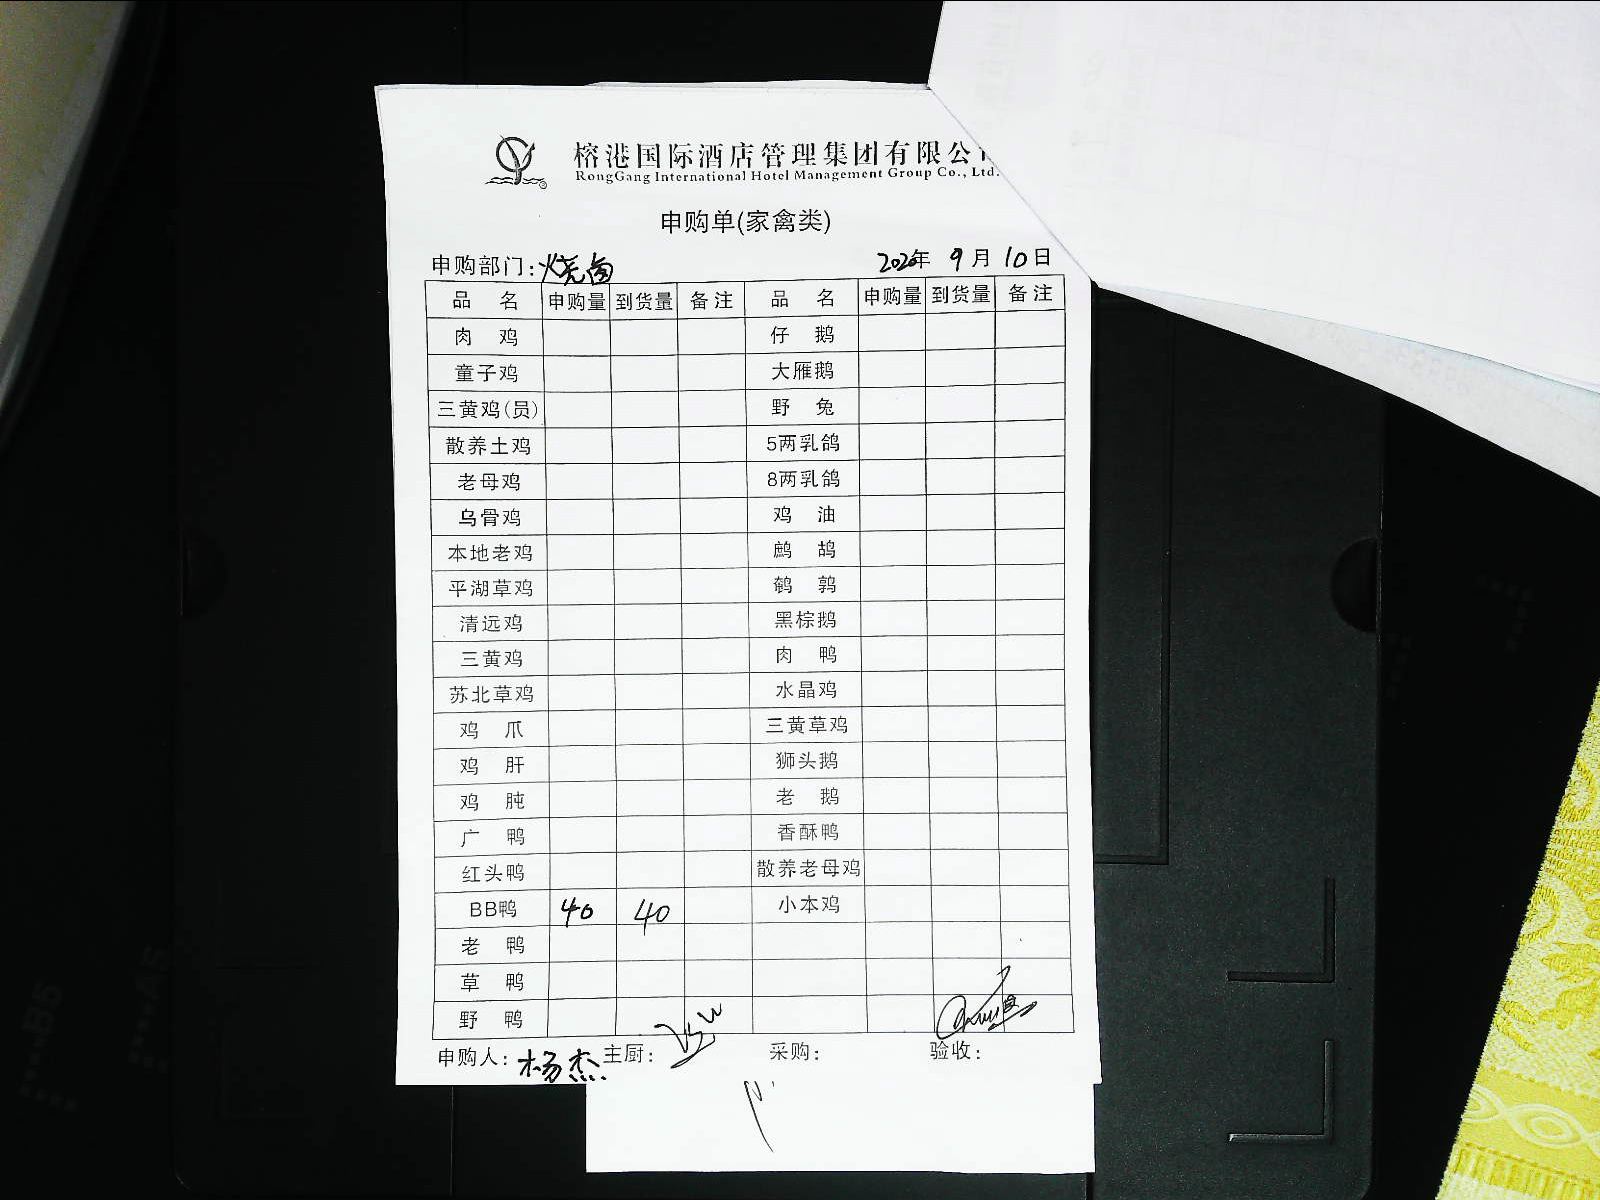 榕港国际酒店管理集团有限公
RongGang International Hotel Management Group Co., Ltd.
申购单(家禽类)
申购部门:烧卤 2020年 9月10日
品 名 申购量 到货量 备注 品 名 申购量 到货量 备注
肉 鸡 仔 鹅
童子鸡 大雁鹅
三黄鸡(员) 野 兔
散养土鸡 5两乳鸽
老母鸡 8两乳鸽
乌骨鸡 鸡 油
本地老鸡 鹧 鸪
平湖草鸡 鹌 鹑
清远鸡 黑棕鹅
三黄鸡 肉 鸭
苏北草鸡 水晶鸡
鸡 爪 三黄草鸡
鸡 肝 狮头鹅
鸡 肫 老 鹅
广 鸭 香酥鸭
红头鸭 散养老母鸡
BB鸭 40 40 小本鸡
老 鸭
草 鸭
野 鸭
申购人:杨杰 主厨: 采购: 验收: